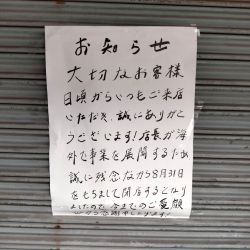 お知らせ
大切なお客様
日頃からいつもご来店
いただき、誠にありがと
うございます!店長が海
外で事業を展開するため
誠に残念ながら8月31日
をもちまして閉店することなり
ましたので今までのご愛顧
心から感謝申し上げます!